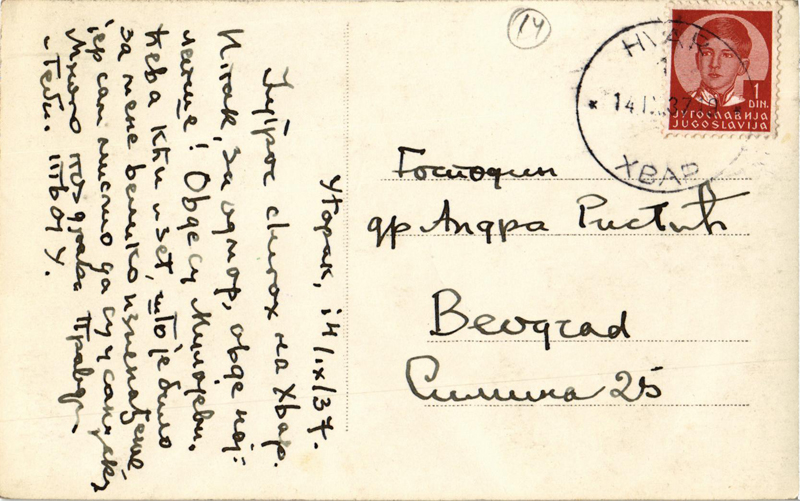 14
HVAR
14.IX.37
ХВАР
1
DIN.
ЈУГОСЛАВИЈА
JUGOSLAVIJA
Господин
др Андра Ристић
Beograd
Симина 25
Уторак, 14/IX/37.
Јутрос стигох на Хвар.
Ипак, за одмор, овде нај=
лепше! Овде су Милојеви-
ћева кћи и зет, што је било
за мене велико изненађење
јер сам мислио да су у
Много поздрава Правди
и Теби. Твој У.